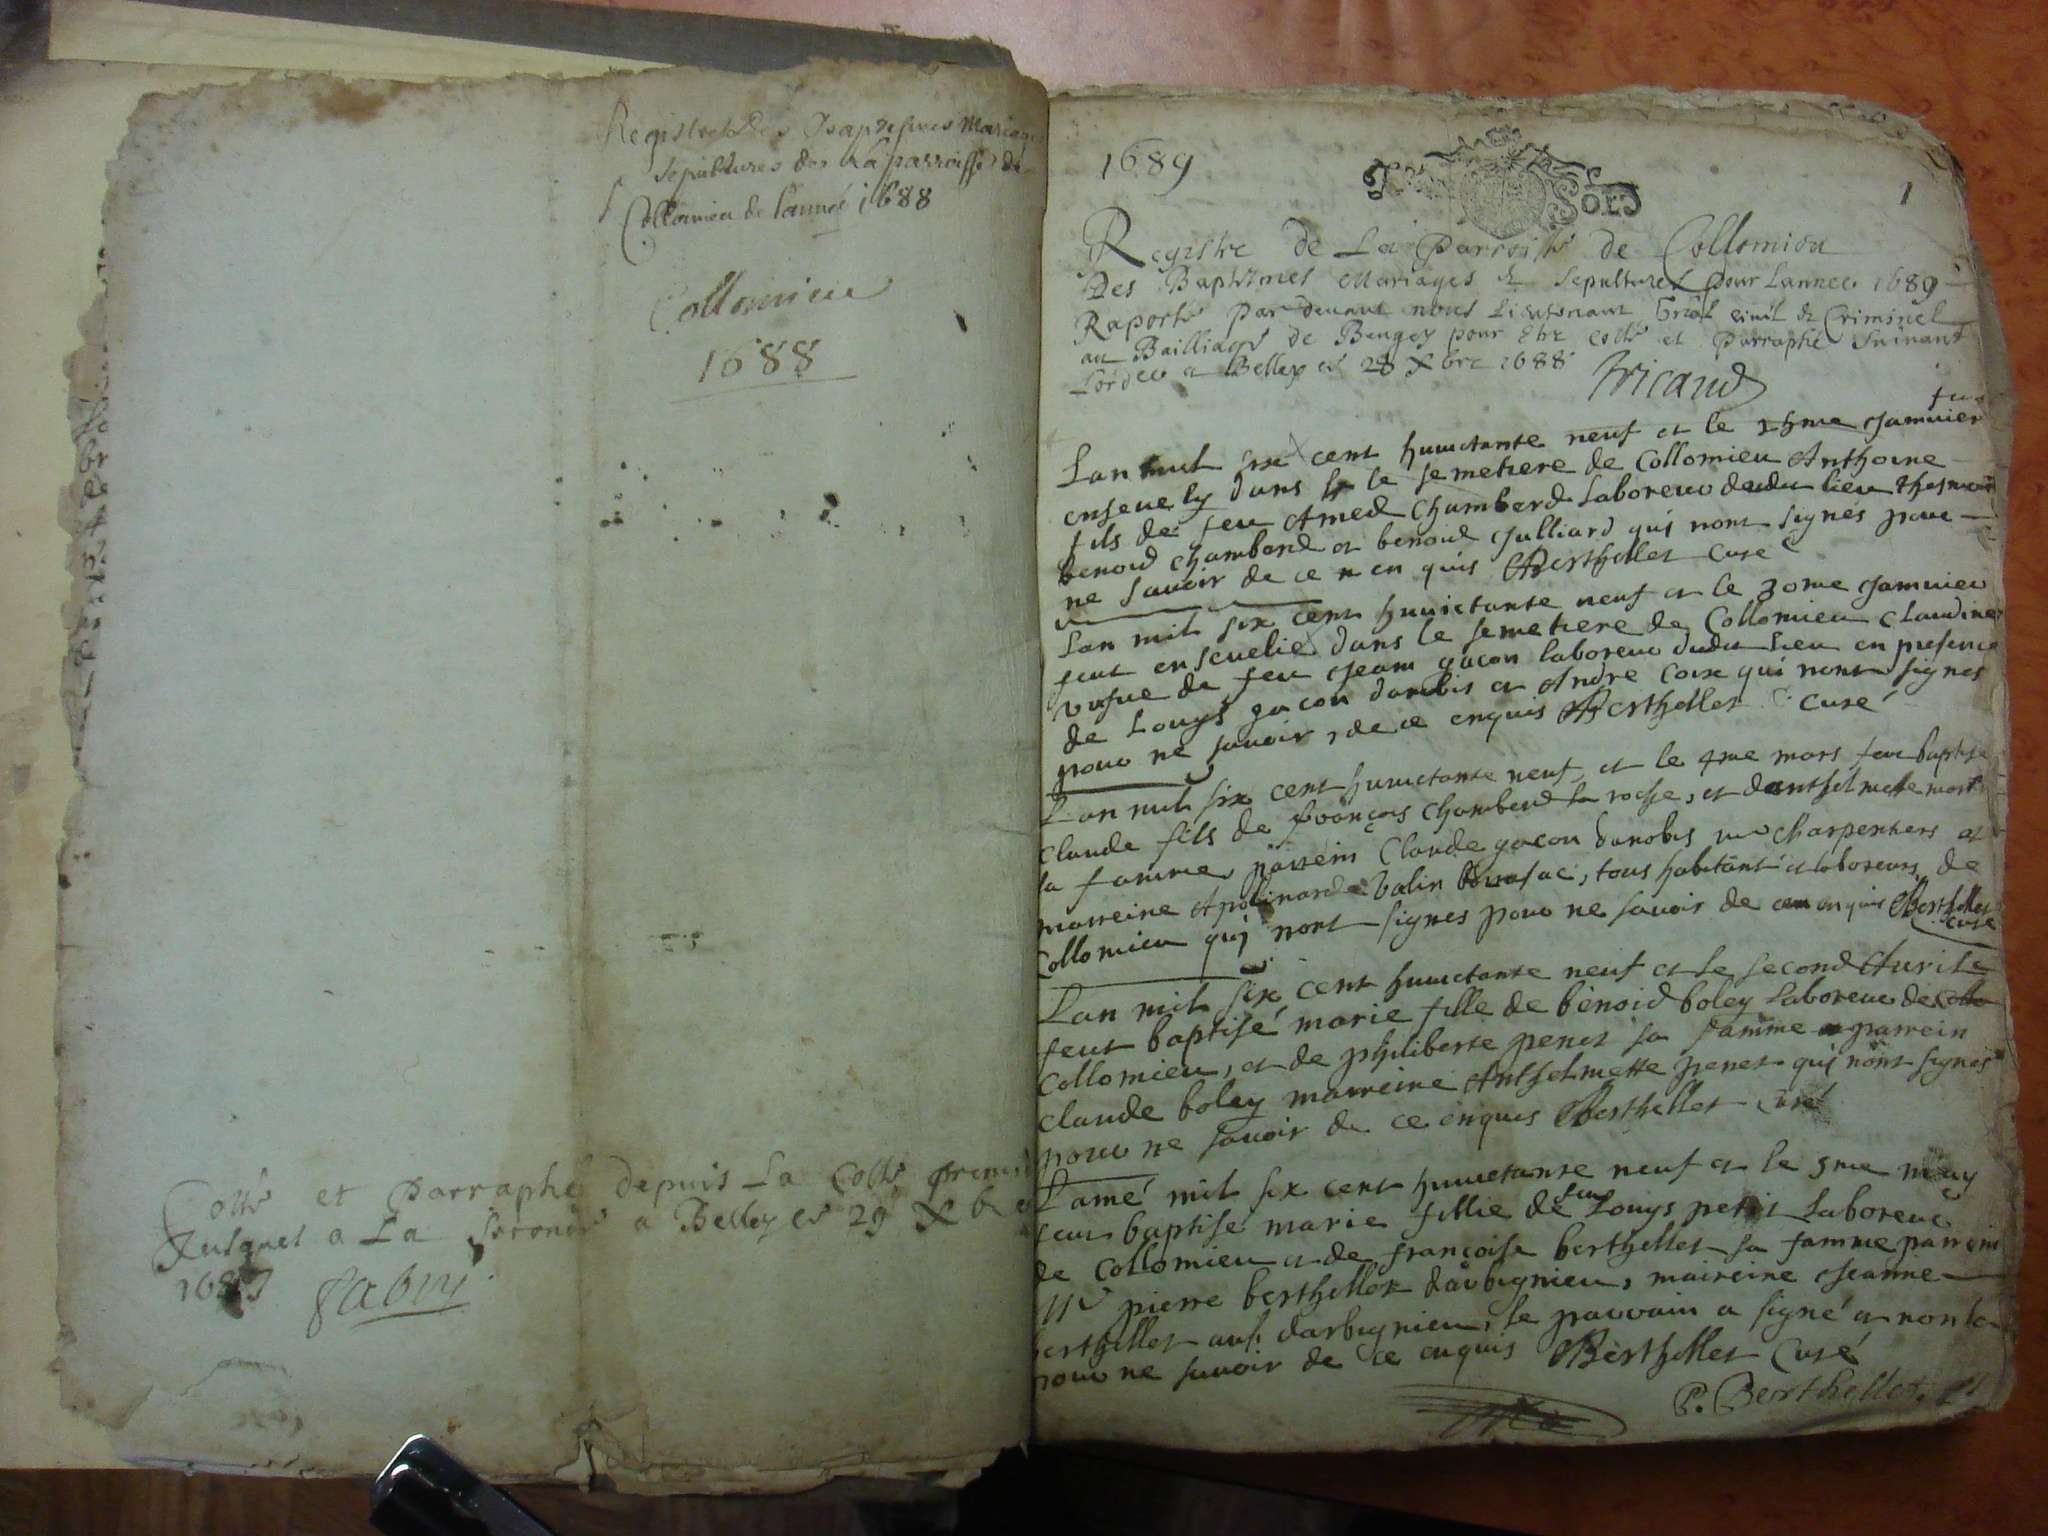 Registre des Baptesmes Mariages
sepultures de La parroisse de
Collomieu de l'année 1688
Collomieu
1688
Cotté et Parraphé depuis La Cotte premiere
Jusques a La seconde a Belley ce 29 Xbre
1687 Fabry
1689
1
Registre de La Parroisse de Collomieu
Des Baptesmes Mariages & Sepultures pour Lannee 1689
Raporté Pardevant nous Lieutenant Gnâl civil & Criminel
au Bailliage de Beugey pour Etre cotté et Parraphé Suivant
Lordce a Belley ce 28 Xbre 1688 Tricaud
Lan mil six cent huuictante neuf et le 15me Jamvier feut
ensevely dans le semetiere de Collomieu Anthoine
fils de feu Amed Chamberd Laboreur dudu lieu thesmoin
benoid chamberd et benoid Julliard qui nont signés pour
ne savoir de ce en quis Berthellet Curé
Lan mil six cent huuictante neuf et le 30me Jamvier
feut ensevelie dans le semetiere de Collomieu Claudine
vefue de feu Jean gacon laboreur dudu lieu en presence
de Louys gacon danobis et Andre Coix qui nont signes
pour ne savoir, de ce enquis Berthellet Curé
Lan mil six cent huuictante neuf et le 4me mars feut baptise
Claude fils de françois Chamberd la roche, et danthelmette
sa famme, parrein Claude gacon danobis charpentiers et
marreine Apolinarde balin, tous habitant et laboreurs de
Collomieu qui nont signes pour ne savoir de ce enquis Berthellet
curé
Lan mil six cent huuictante neuf et le second Auril
feut baptisé marie fille de benoid boley Laboreur de
Collomieu, et de philiberte penet sa famme parrein
Claude boley marreine Anthelmette penet qui nont signes
pour ne savoir de ce enquis Berthellet Curé
Lamé mil six cent huuictante neuf et le 5me may
feut baptise marie fillie de feu Louys petit Laboreur
de Collomieu et de françoise berthellet sa famme parrein
Mr pierre berthellet darbignieu, maireine Jeanne
berthellet ausi darbignieu, le parrain a signé et non la
pour ne savoir de ce enquis Berthellet Curé
P. Berthellet